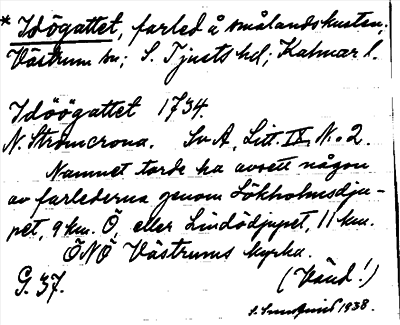 * Idögattet, farled å smålandskusten;
Västrum sn; S. Tjusts hd; Kalmar l.
Idöögattet 1734.
N. Strömcrona. Sv A, Litt. IX, N:o 2.
Namnet torde ha avsett någon
av farlederna genom Lökholmsdju-
pet, 9 km. Ö, eller Lindödjupet, 11 km.
ÖNÖ Västrums kyrka.
G. 37.
(Vänd!)
1938.